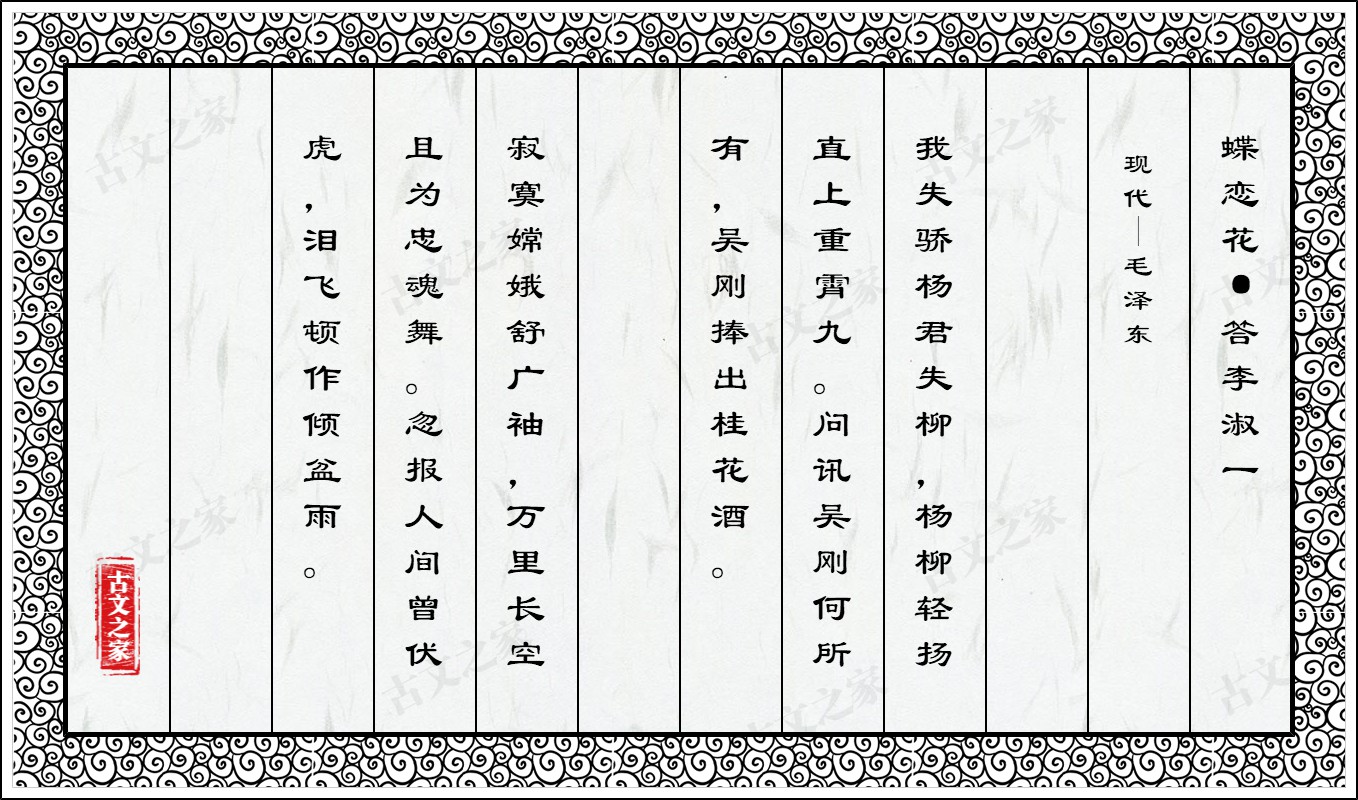 蝶恋花●答李淑一
现代—毛泽东
我失骄杨君失柳,杨柳轻扬
直上重霄九。问讯吴刚何所
有,吴刚捧出桂花酒。
寂寞嫦娥舒广袖,万里长空
且为忠魂舞。忽报人间曾伏
虎,泪飞顿作倾盆雨。
古文之家